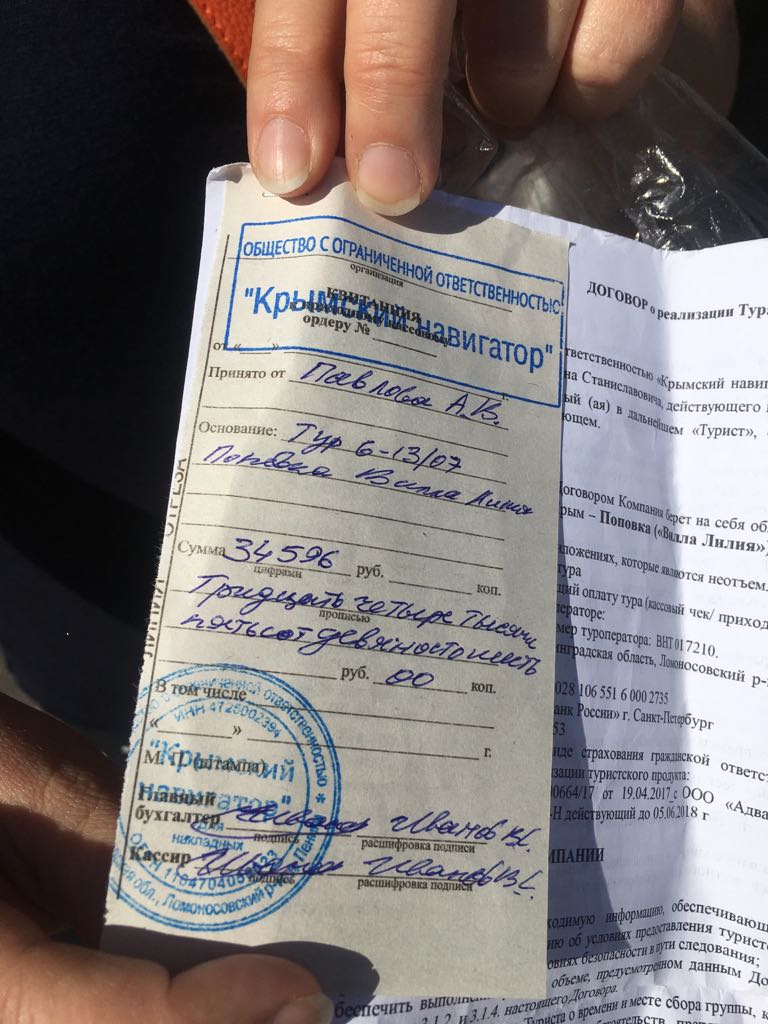 ОБЩЕСТВО С ОГРАНИЧЕННОЙ ОТВЕТСТВЕННОСТЬЮ
организация
"Крымский навигатор"
КВИТАНЦИЯ
к приходному кассовому
ордеру №
от « » г.
Принято от Павлова А.В.
Основание: Тур 6-13/07
Поповка Вилла Лилия
Сумма 34 596 руб. коп.
цифрами
Тридцать четыре тысячи
прописью
пятьсот девяносто шесть
руб. 00 коп.
В том числе
« » г.
М.П. (штампа)
Главный
бухгалтер Иванов В.С.
подпись расшифровка подписи
Кассир Иванов В.С.
подпись расшифровка подписи
ЛИНИЯ ОТРЕЗА
ограниченной ответственностью
ИНН 4725002394
"Крымский
навигатор"
Для
накладных
обл., Ломоносовский р-
ДОГОВОР о реализации Тура
тветственностью «Крымский навиг
на Станиславовича, действующего
ый (ая) в дальнейшем «Турист»,
ющем.
Договором Компания берет на себя об
рым – Поповка («Вилла Лилия»)
ложениях, которые являются неотъем.
тура
щий оплату тура (кассовый чек/ приход
ператоре:
мер туроператора: ВНТ 017210.
инградская область, Ломоносовский р-
028 106 551 6 000 2735
анк России» г. Санкт-Петербург
53
иде страхования гражданской ответст
зации туристского продукта:
00664/17 от 19.04.2017 с ООО «Адва
-Н действующий до 05.06.2018 г
МПАНИИ
ходимую информацию, обеспечивающ
ию об условиях предоставления туристс
овиях безопасности в пути следования;
объеме, предусмотренном данным До
беспечить выполн
3.1.2. и 3.1.4. настоящего Договора.
Туриста о времени и месте сбора группы, к